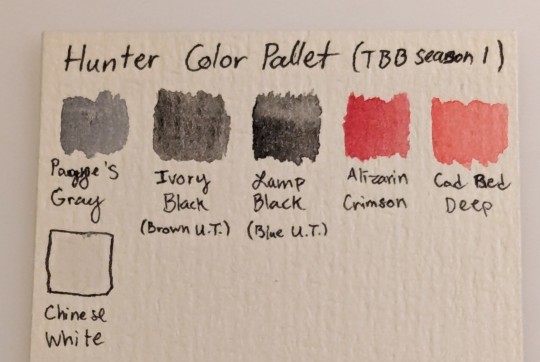 Hunter Color Pallet (TBB Season 1)
Payne's
Gray
Ivory
Black
(Brown U.T.)
Lamp
Black
(Blue U.T.)
Alizarin
Crimson
Cad Red
Deep
Chinese
White